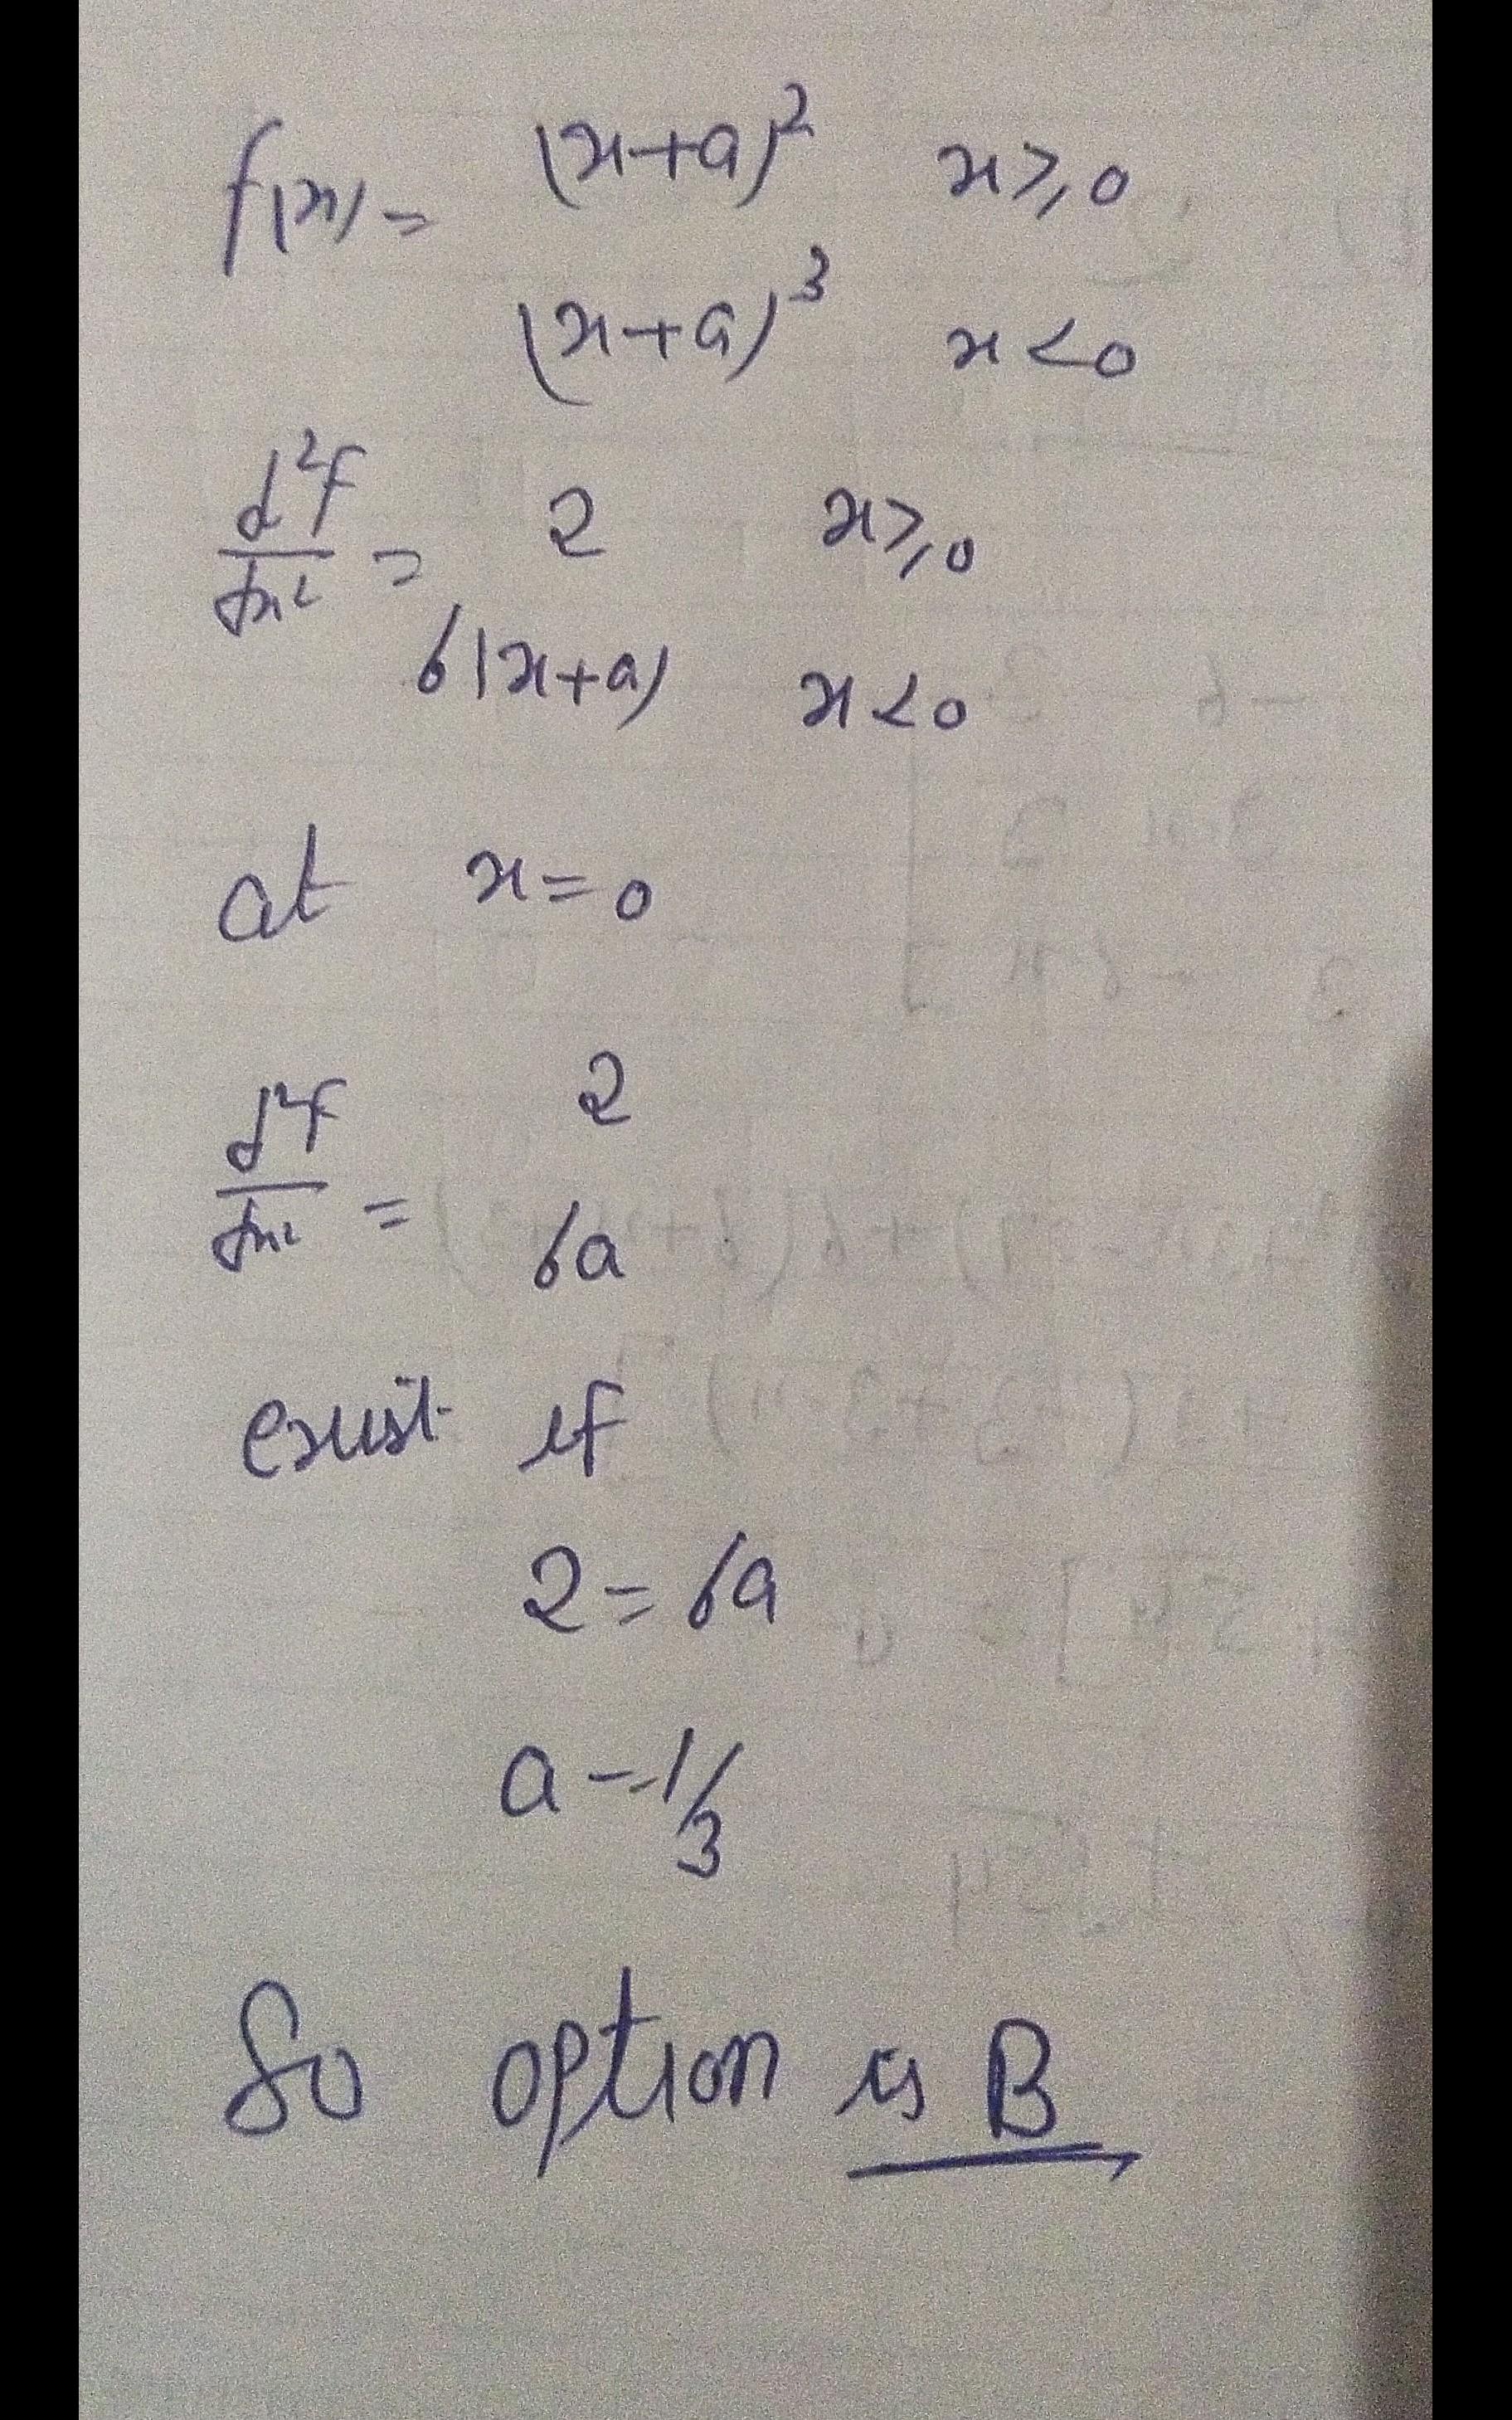 f(x) = (x+a)² x≥0
(x+a)³ x<0
d²f/dx² = 2 x≥0
6(x+a) x<0
at x=0
d²f/dx² = 2
6a
exist if
2=6a
a=1/3
So option is B